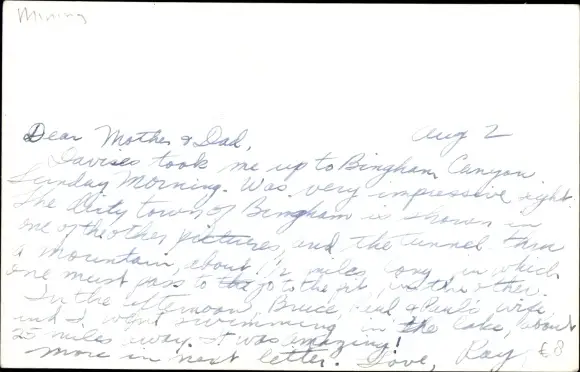 Mining
Dear Mother & Dad, Aug 2
Davises took me up to Bingham Canyon
Sunday Morning. Was very impressive sight.
The dirty town of Bingham is shown in
one of the other pictures, and the tunnel thru
a mountain, about 1 1/2 miles long, in which
one must pass to go to the pit, in the other.
In the afternoon, Bruce, Paul & Paul's wife
and I went swimming in the lake, about
25 miles away. It was amazing!
more in next letter. Love, Ray